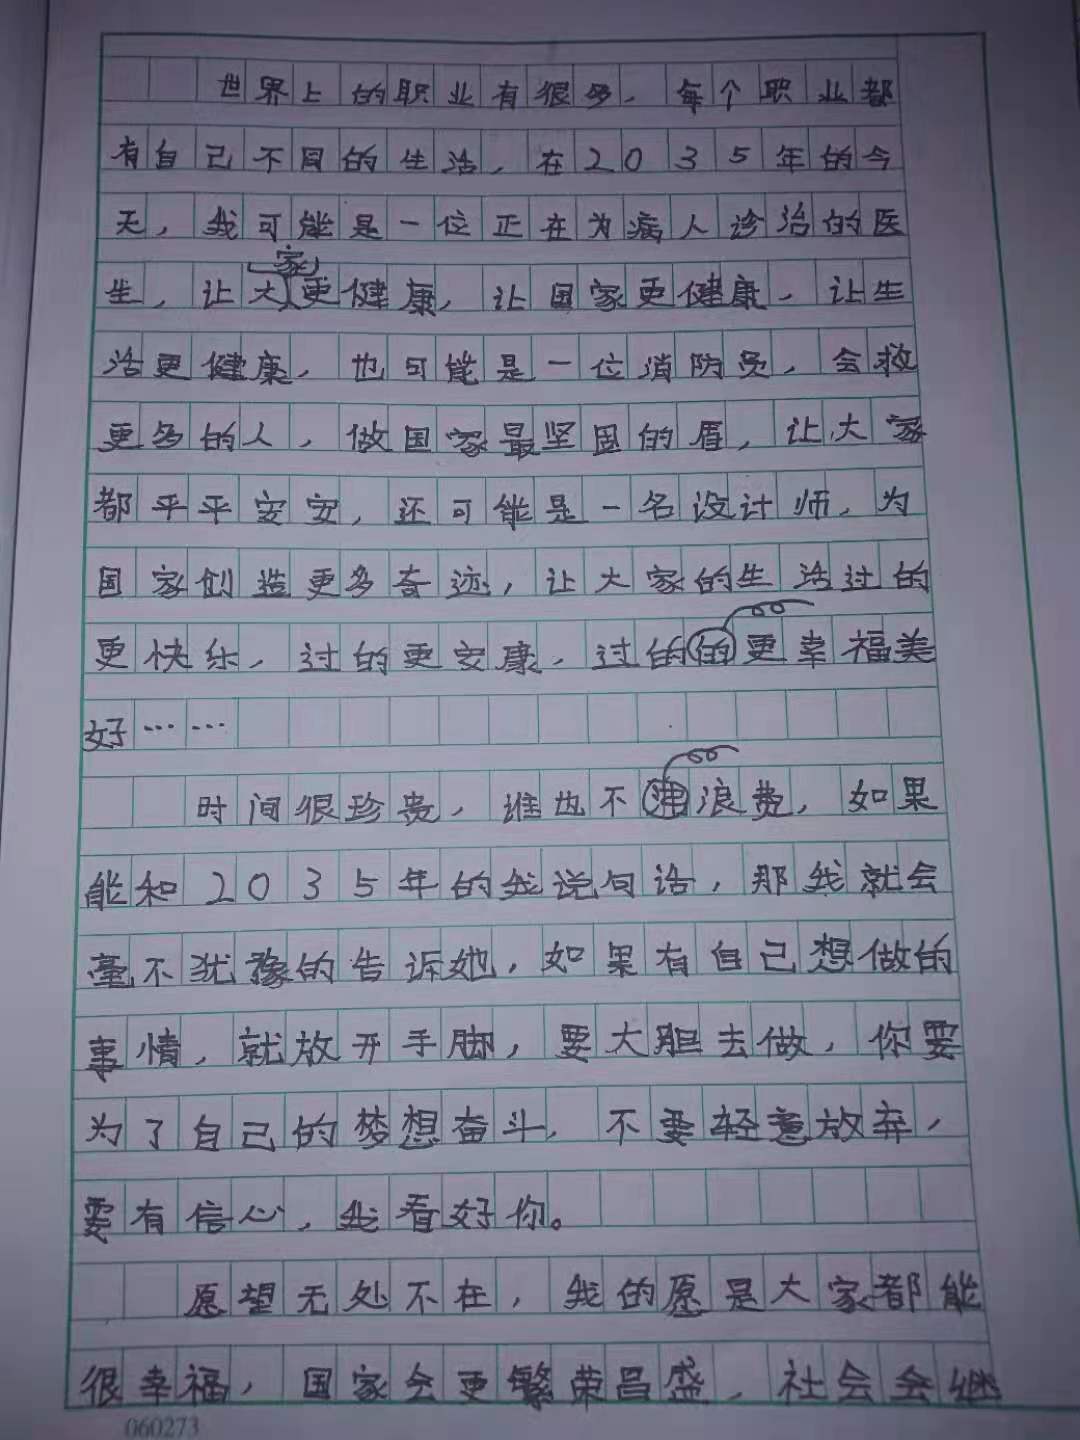 世界上的职业有很多，每个职业都
有自己不同的生活，在2035年的今
天，我可能是一位正在为病人诊治的医
生，让大家更健康，让国家更健康，让生
活更健康，也可能是一位消防员，会救
更多的人，做国家最坚固的盾，让大家
都平平安安，还可能是一名设计师，为
国家创造更多奇迹，让大家的生活过的
更快乐，过的更安康，过的更幸福美
好……
时间很珍贵，谁也不浪费，如果
能和2035年的我说句话，那我就会
毫不犹豫的告诉她，如果有自己想做的
事情，就放开手脚，要大胆去做，你要
为了自己的梦想奋斗，不要轻意放弃，
要有信心，我看好你。
愿望无处不在，我的愿是大家都能
很幸福，国家会更繁荣昌盛，社会会继
060273